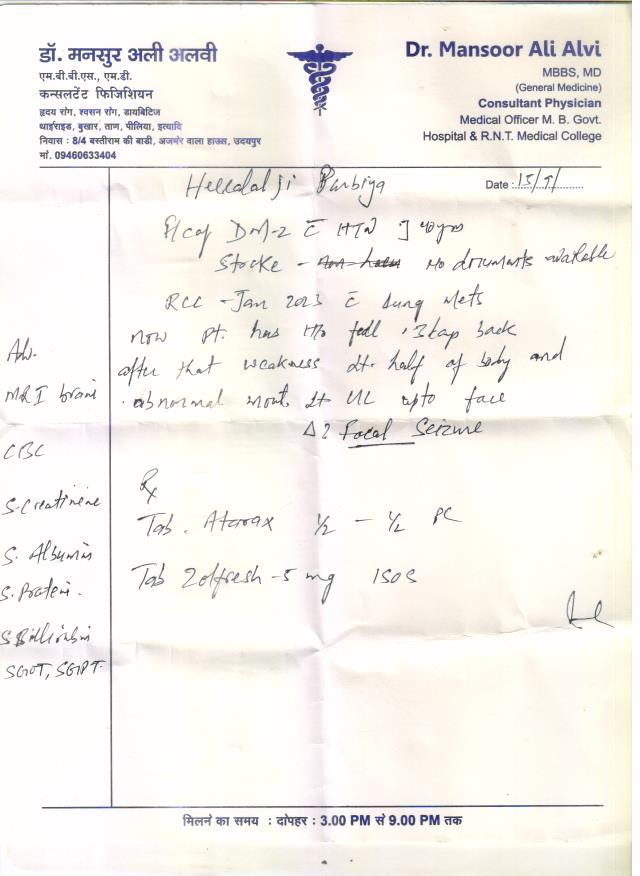 डॉ. मनसुर अली अलवी
एम.बी.बी.एस., एम.डी.
कन्सलटेंट फिजिशियन
हृदय रांग, श्वसन रांग, डायबिटिज
थाईराइड, बुखार, ताण, पीलिया, इत्यादि
निवास : 8/4 बस्तीराम की बाडी, अजमेर वाला हाउस, उदयपुर
मां. 09460633404
Dr. Mansoor Ali Alvi
MBBS, MD
(General Medicine)
Consultant Physician
Medical Officer M. B. Govt.
Hospital & R.N.T. Medical College
Date : 15/9/
DM-2 c̄ HTN
Stocke - No documents available
RCC - Jan 2023 c̄ Lung Mets
now pt. has H/o fall back
after that weakness Lt. half of body and
abnormal Lt UL upto face
Δ? Focal Seizure
Adv.
MRI brain
CBC
S. Creatinine
S. Albumin
S. Protein.
S Billirubin
SGOT, SGPT.
Rx
Tab. Atarax 1/2 - 1/2 PC
Tab Zolfresh - 5 mg 1SOS
मिलने का समय : दांपहर : 3.00 PM से 9.00 PM तक